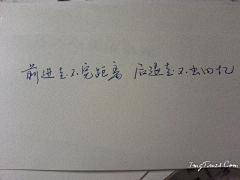 前进走不完距离 后退走不出回忆
ImgTimes.Com